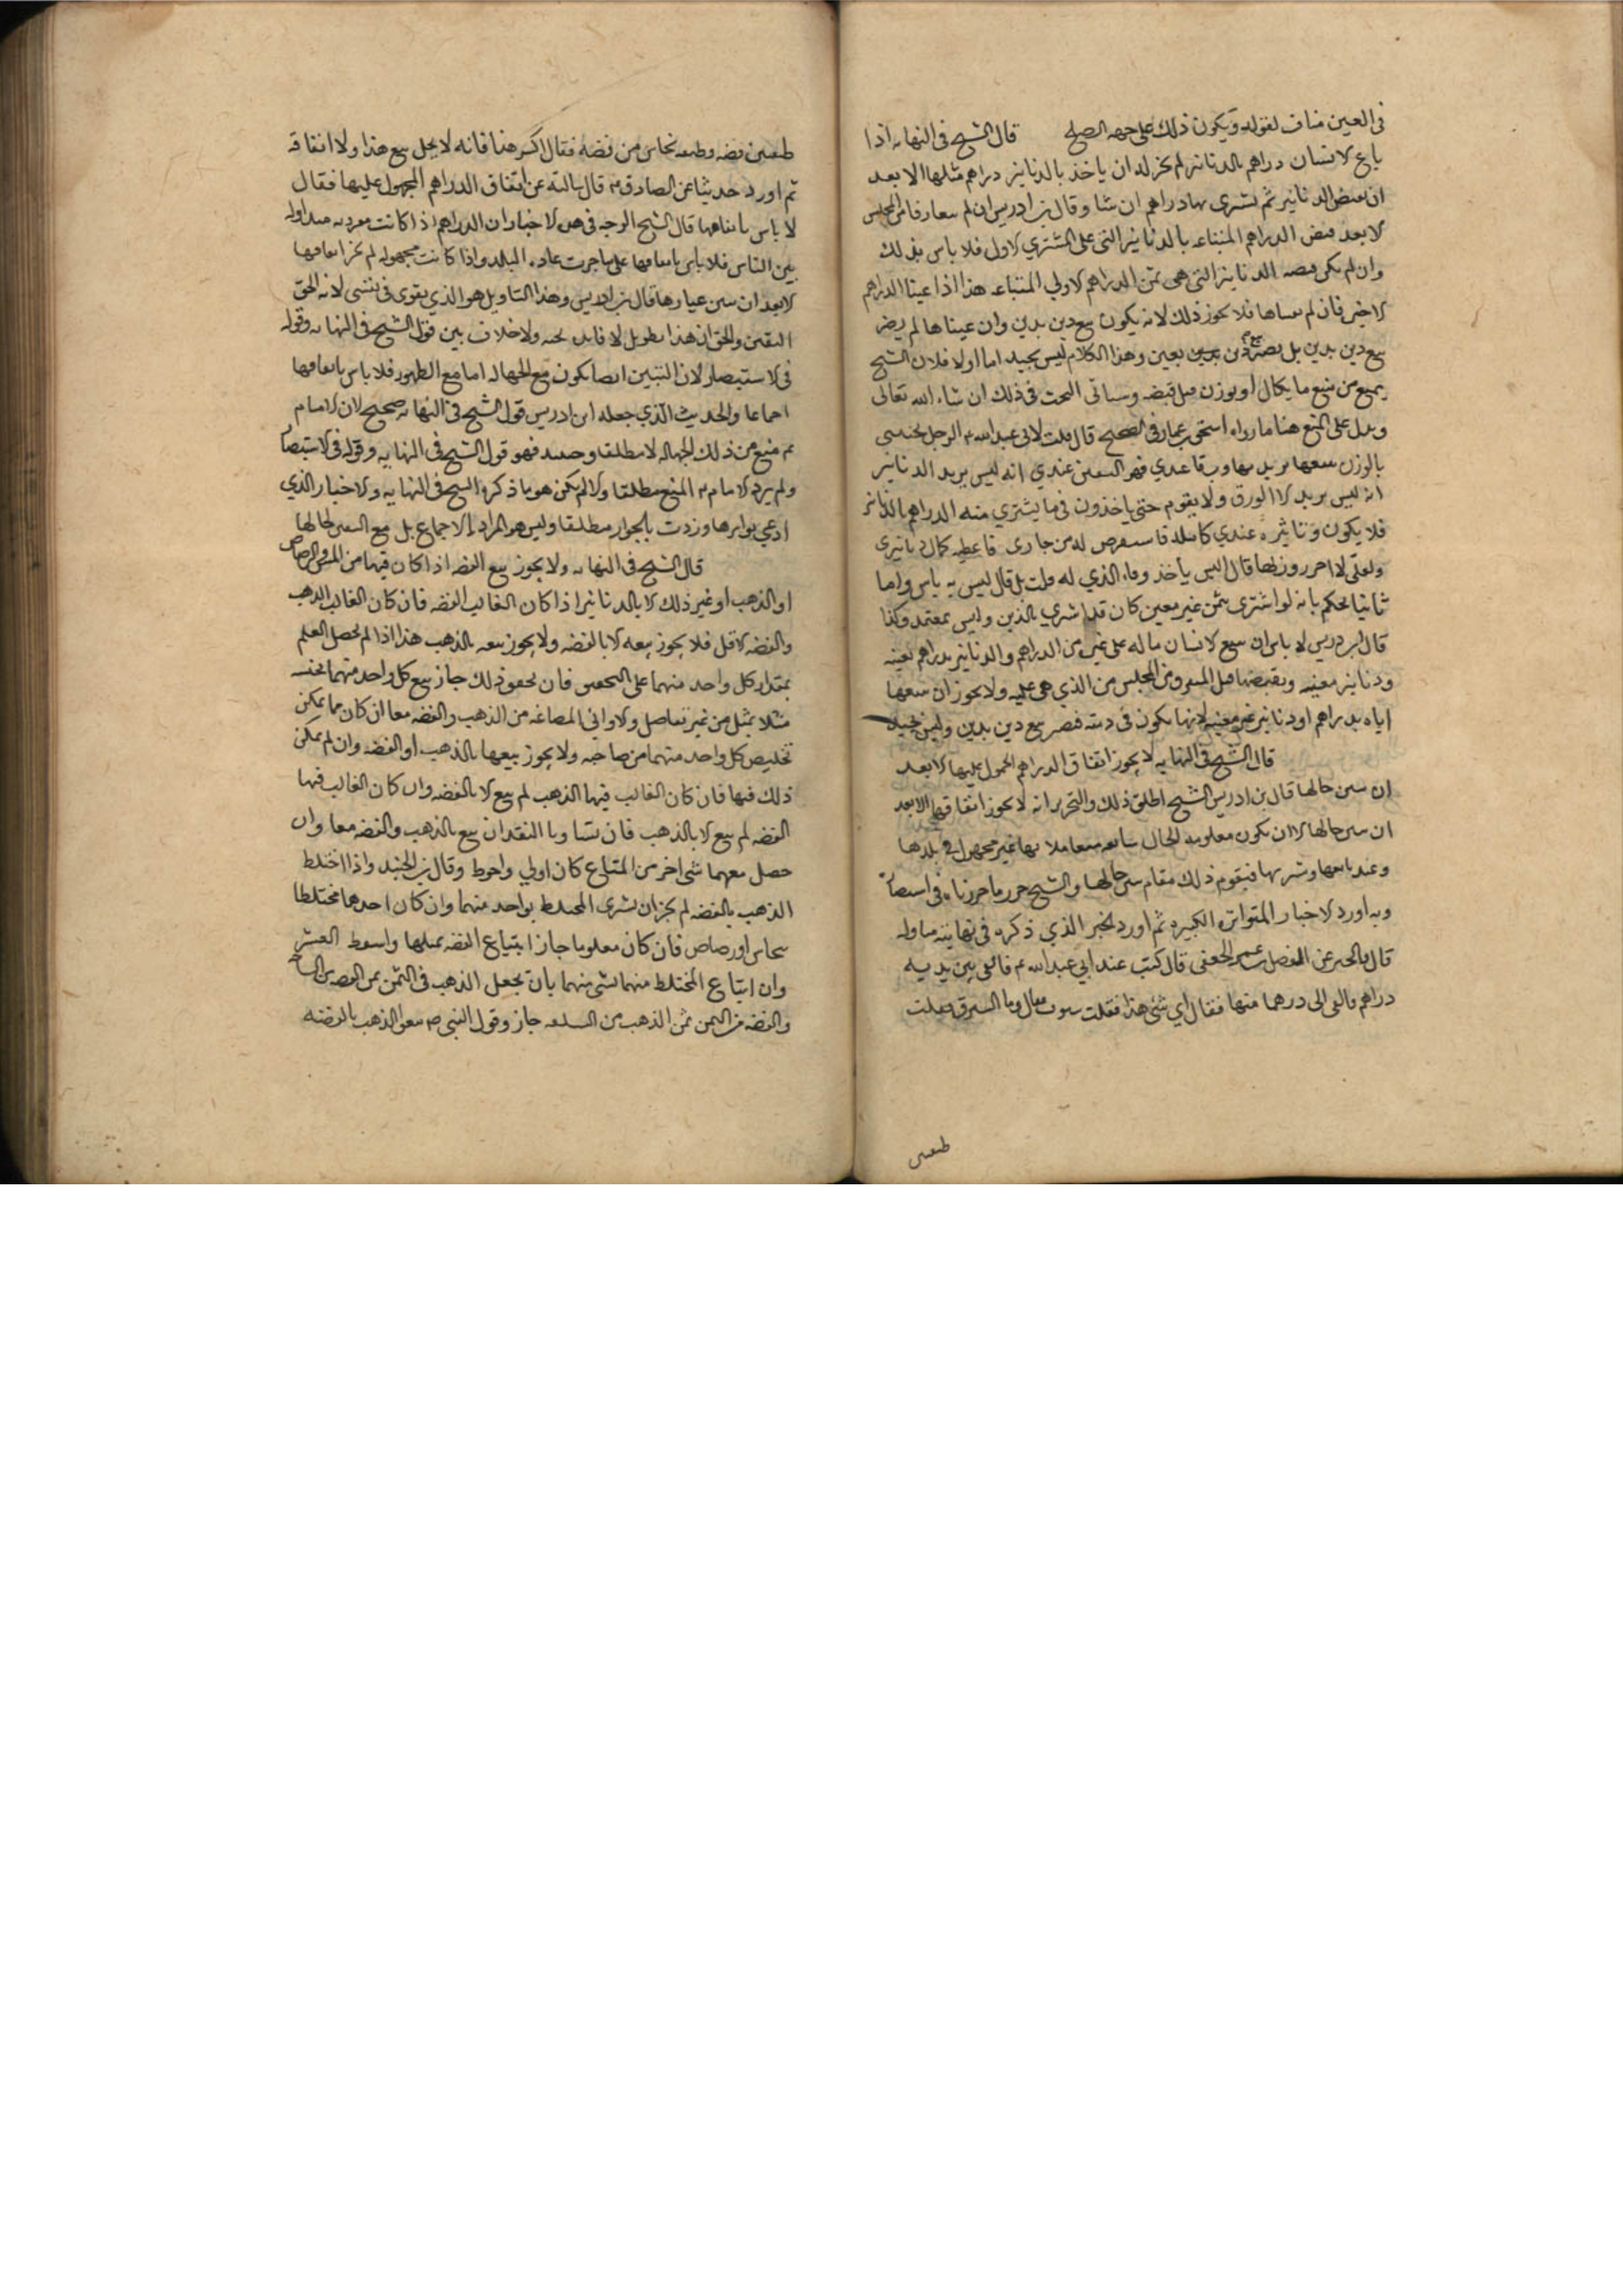 في العين مناف لقوله ويكون ذلك على جهه الصلح قال الشيخ في النهايه اذا
باع الانسان دراهم بالدنانير لم يجز له ان ياخذ بالدنانير دراهم مثلها الا بعد
ان يقبض الدنانير ثم يشتري بها دراهم ان شا وقال بن ادريس ان لم يتفارقا من المجلس
الا بعد قبض الدراهم المبتاعه بالدنانير التي على المشتري الاول فلا باس بذلك
وان لم يكن قبضه الدنانير التي هي ثمن الدراهم الاولي المبتاعه هذا اذا عينا الدراهم
الاخيره فان لم يعيناها فلا يجوز ذلك لانه يكون بيع دين بدين وان عيناها لم يصر
بيع دين بدين بل يصير بيع دين بعين وهذا الكلام ليس بجيد اما اولا فلان الشيخ
يمنع من بيع ما يكال او يوزن قبل قبضه وسياتي البحث في ذلك ان شاء الله تعالى
ويدل على المنع هنا ما رواه اسحق بن عمار في الصحيح قال قلت لابي عبد الله ع الرجل يجيئني
بالورق يبيعها يريد بها ورقا عندي فهو اليقين عندي انه ليس يريد الدنانير
انه ليس يريد الا الورق ولا يقوم حتى ياخذ ورقي فاشتري منه الدراهم بالدنانير
فلا يكون دنانيره عندي كامله فاستقرض له من جاري فاعطيه كمال دنانيري
ولعلي لا احرز وزنها قال اليس ياخذ وفاء الذي له قلت بلى قال ليس به باس واما
ثانيا لحكم بانه لو اشترى بثمن غير معين كان قد اشترى بالدين وليس بمعتمد وكذا
قال ابن ادريس لا باس ان يبيع الانسان ماله على غيره من الدراهم والدنانير بدراهم معينه
ودنانير معينه ويقبضها قبل التفرق من المجلس من الذي هي عليه ولا يجوز ان يبيعها
اياه بدراهم او دنانير غير معينه لانها يكون في ذمته فيصير بيع دين بدين وليس بجيد
قال الشيخ في النهايه لا يجوز انفاق الدراهم المحمول عليها الا بعد
ان يبين حالها قال بن ادريس الشيخ اطلق ذلك والتحرير انه لا يجوز انفاقها الا بعد
ان يبين حالها الا ان يكون معلومه الحال شايعه متعاملا بها غير مجهوله في بلدها
وعند بايعها ومشتريها فيقوم ذلك مقام تبيين حالها والشيخ حرر ما حررناه في استبصاره
وبه اورد الاخبار المتواتره الكثيره ثم اورد الخبر الذي ذكره في نهايته
قال والخبر عن المفضل بن عمر الجعفي قال كنت عند ابي عبد الله ع فالقي بين يديه
دراهم والقى الى درهما منها فقال اي شي هذا فقلت ستوق فقال وما الستوق فقلت
طبقتين
طبقتين فضه وطبقه نحاس من فضه فقال اكسر هذا فانه لا يحل بيع هذا ولا انفاقه
ثم اورد حديثا عن الصادق ع قال سالته عن انفاق الدراهم المحمول عليها فقال
لا باس بانفاقها قال الشيخ الوجه في هذه الاخبار ان الدراهم اذا كانت معروفه متداوله
بين الناس فلا باس بانفاقها على ما جرت عاده البلد واذا كانت مجهوله لم يجز انفاقها
الا بعد ان يبين عيارها قال بن ادريس وهذا التاويل هو الذي يقوى في نفسي لانه الحق
اليقين والحق ان هذا تطويل لا فايده تحته ولا خلاف بين قول الشيخ في النهايه وقوله
في الاستبصار لان التبيين انما يكون مع الجهاله اما مع الظهور فلا باس بانفاقها
اجماعا والحديث الذي جعله ابن ادريس قول الشيخ في النهايه صحيح لان الامام
ع منع من ذلك للجهاله لا مطلقا وحينئذ فهو قول الشيخ في النهايه وقوله في الاستبصار
ولم يرد الامام ع المنع مطلقا والا لم يكن هو ما ذكره الشيخ في النهايه والاخبار الذي
ادعي تواترها وردت بالجواز مطلقا وليس هو المراد بالاجماع بل مع التبين لحالها
قال الشيخ في النهايه ولا يجوز بيع الفضه اذا كان فيها من المس والرصاص
او الذهب او غير ذلك الا بالدنانير اذا كان الغالب الفضه فان كان الغالب الذهب
والفضه الاقل فلا يجوز بيعه الا بالفضه ولا يجوز بيعه بالذهب هذا اذا لم يحصل العلم
بمقدار كل واحد منهما على التحقيق فان تحقق ذلك جاز بيع كل واحد منهما بجنسه
مثلا بمثل من غير تفاضل والاواني المصاغه من الذهب والفضه معا ان كان مما يمكن
تخليص كل واحد منهما من صاحبه ولا يجوز بيعها بالذهب او الفضه وان لم يمكن
ذلك فيها فان كان الغالب فيها الذهب لم يبع الا بالفضه وان كان الغالب فيها
الفضه لم يبع الا بالذهب فان تساويا النقدان بيع بالذهب والفضه معا وان
جعل معهما شي اخر من المتاع كان اولي واحوط وقال بن الجنيد واذا اختلط
الذهب بالفضه لم يجز ان يشتري المختلط بواحد منهما وان كان احدهما مختلطا
بنحاس او رصاص فان كان معلوما جاز ابتياع الفضه بمثلها واسقط الغش
وان ابتاع المختلط منهما بشي منهما بان يجعل الذهب في الثمن ثمن الفضه من السلعه
والفضه من الثمن ثمن الذهب من السلعه جاز وقول النبي ص بيعوا الذهب بالفضه